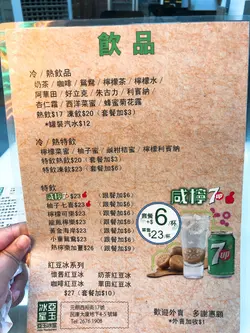 飲品
冷/熱飲品
奶茶/咖啡/鴛鴦/檸檬茶/檸檬水/
阿華田/好立克/朱古力/利賓納/
杏仁霜/西洋菜蜜/蜂蜜菊花露
熱飲$17 凍飲$20(套餐加$3)
*罐裝汽水$12
冷/熱特飲
檸檬菜蜜/柚子蜜/鹹柑桔蜜/檸檬利賓納
特飲熱飲$20(套餐$3)
特飲凍飲$23(套餐$6)
特飲
咸檸7 (跟餐加$6)
柚子七喜$23 (跟餐加$6)
檸檬可樂$23 (跟餐加$6)
(跟餐加$6)
黃金海岸$23 (跟餐加$6)
小童鴛鴦$23 (跟餐加$6)
熱檸樂加薑$26 (跟餐加$9)
咸檸7
跟餐 +$6/杯
$23/杯
7up
紅豆冰系列
懷舊紅豆冰 奶茶紅豆冰
咖啡紅豆冰 菜蜜紅豆冰
$27(套餐加$10)
歡迎外賣,多謝惠顧
*外賣加收$1
冰室
亞玉